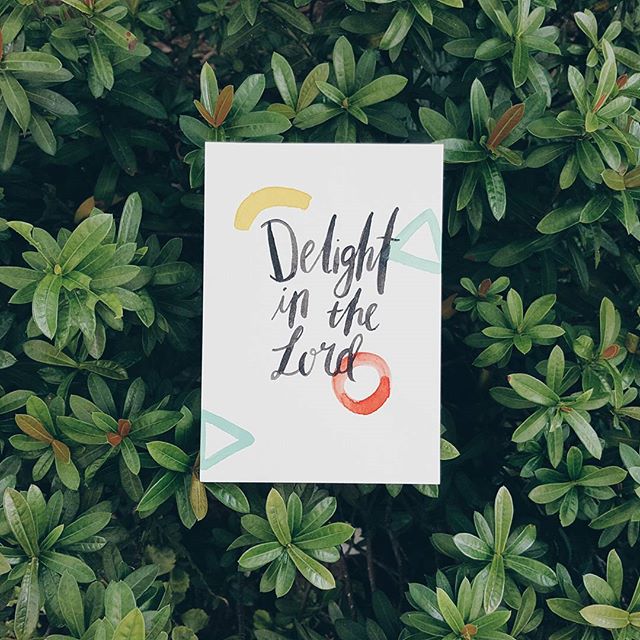 Delight
in the
Lord